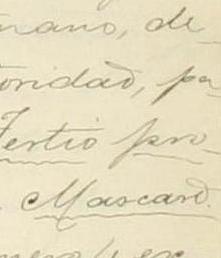 mano, de
toridad, pa
Tertio pro
Mascaró.